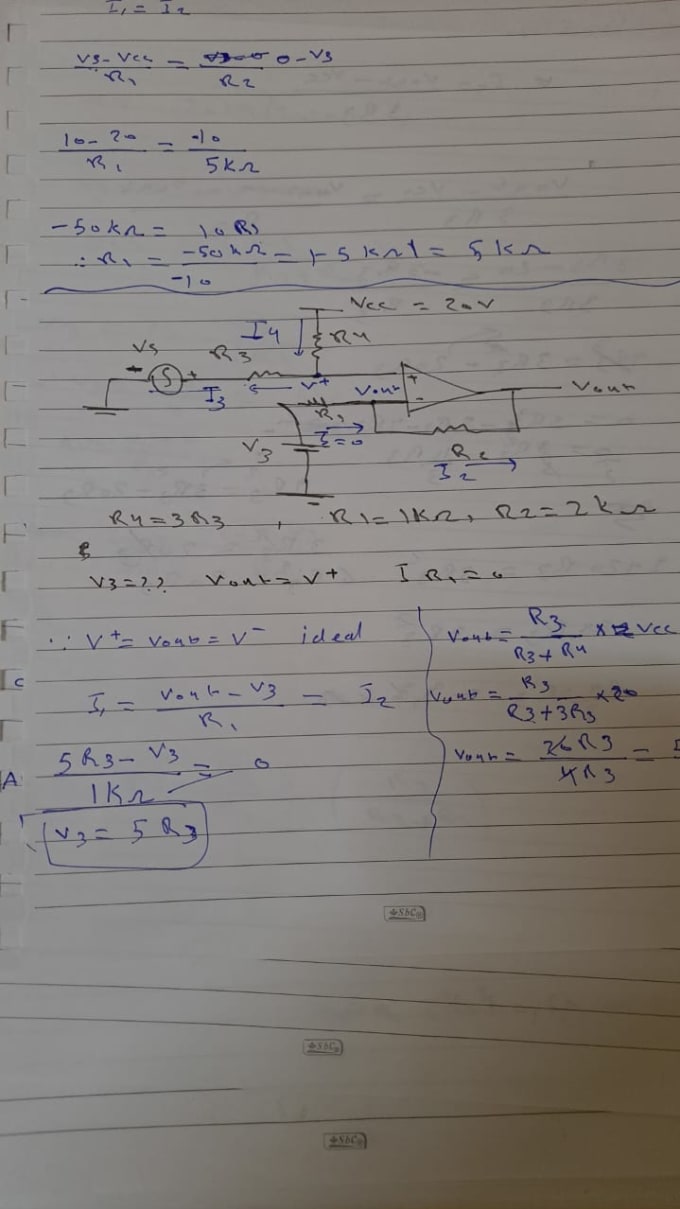 I₁ = I₂
V3-Vcc / R₁ = 0-V3 / R2
10-20 / R₁ = -10 / 5kΩ
-50kΩ = 10R₁
∴ R₁ = -50kΩ / -10 = |-5kΩ| = 5kΩ
Vcc = 20V
I4 R4
Vs R3
- S + V+ Vout + Vout
I3 R₁ -
V3 I=0 R2
I2
R4=3R3 , R1=1KΩ, R2=2kΩ
V3=?? Vout=V+ I R₁=0
∵ V+=Vout=V- ideal
I₁ = Vout-V3 / R₁ = I2
5R3-V3 / 1KΩ = 0
V3 = 5R3
Vout = R3 / R3+R4 × Vcc
Vout = R3 / R3+3R3 ×20
Vout = 20R3 / 4R3 =
C
A
SbC
SbC
SbC